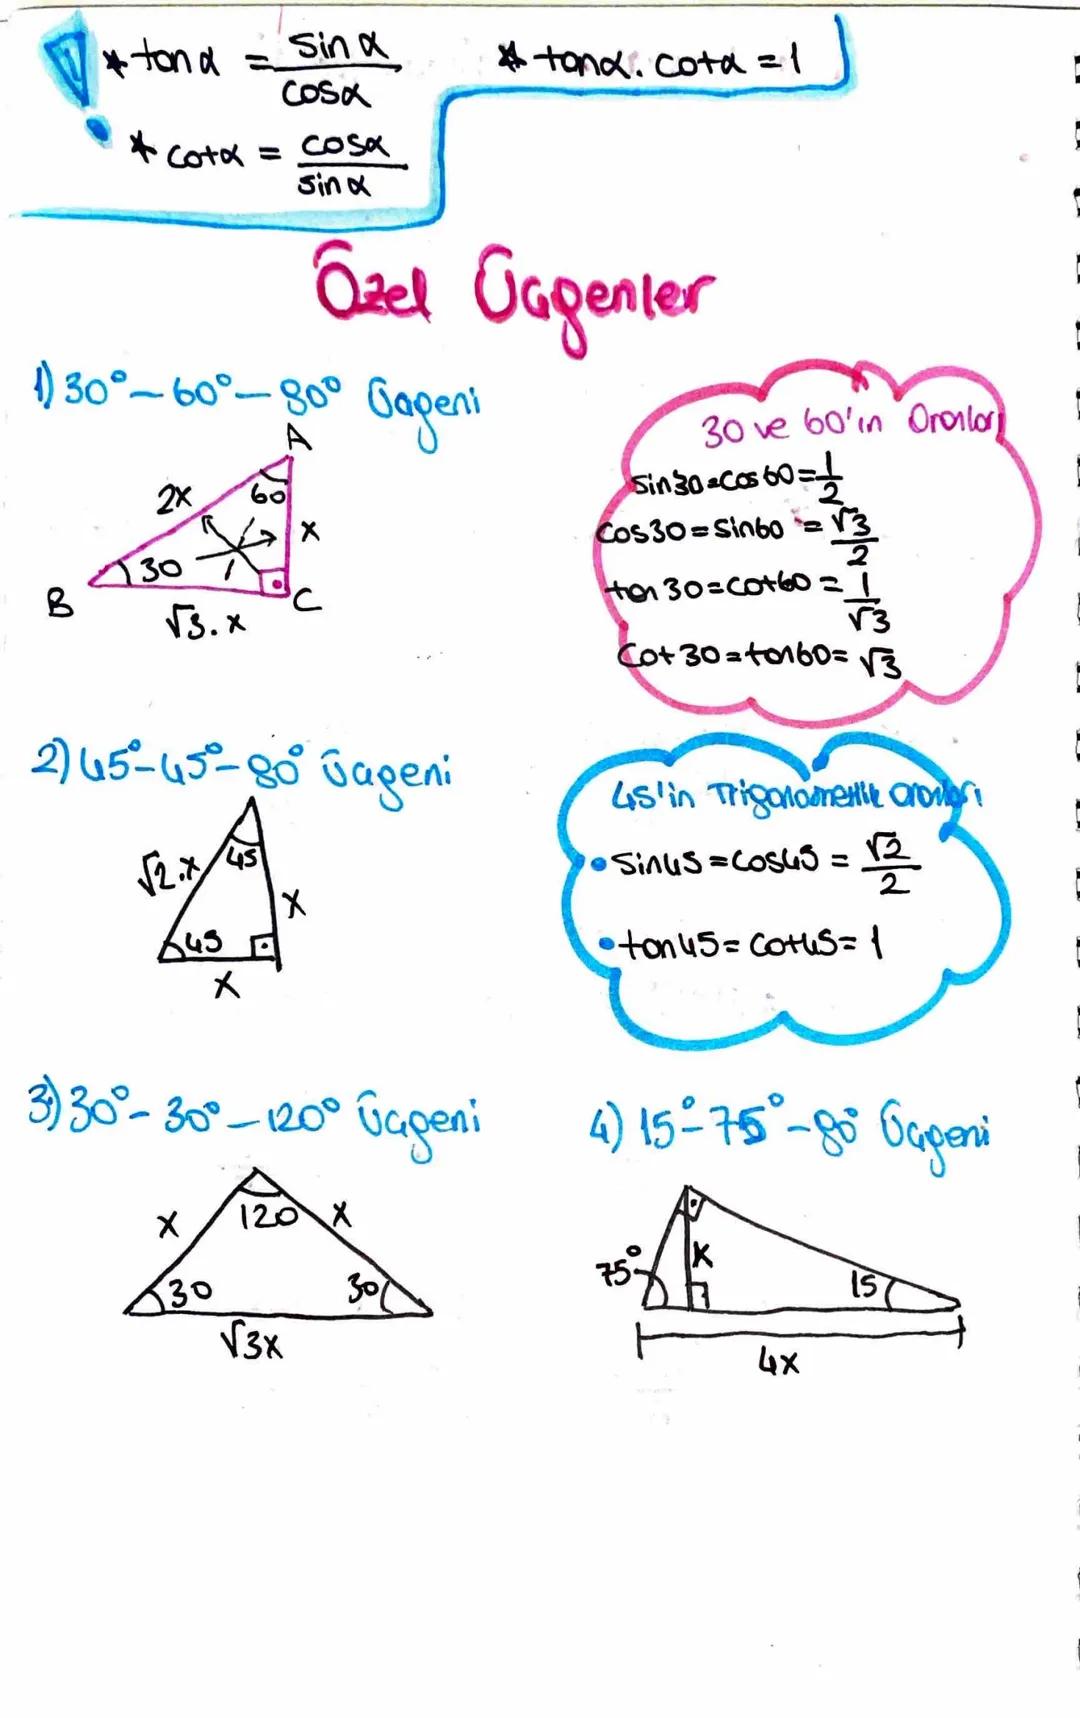 * tanα = sinα / cosα
* tanα . cotα = 1
* cotα = cosα / sinα
Özel Üçgenler
1) 30° - 60° - 90° Üçgeni
A
2x
60
x
30
B
C
√3.x
30 ve 60'ın Oranları
sin30=cos60=1/2
cos30=sin60=√3/2
tan30=cot60=1/√3
cot30=tan60=√3
2) 45°-45°-90° Üçgeni
√2.x
45
x
45
x
45'in Trigonometrik oranları
• sin45=cos45=√2/2
• tan45=cot45=1
3) 30°-30°-120° Üçgeni
x
120
x
30
30
√3x
4) 15°-75°-90° Üçgeni
75°
x
15
4x